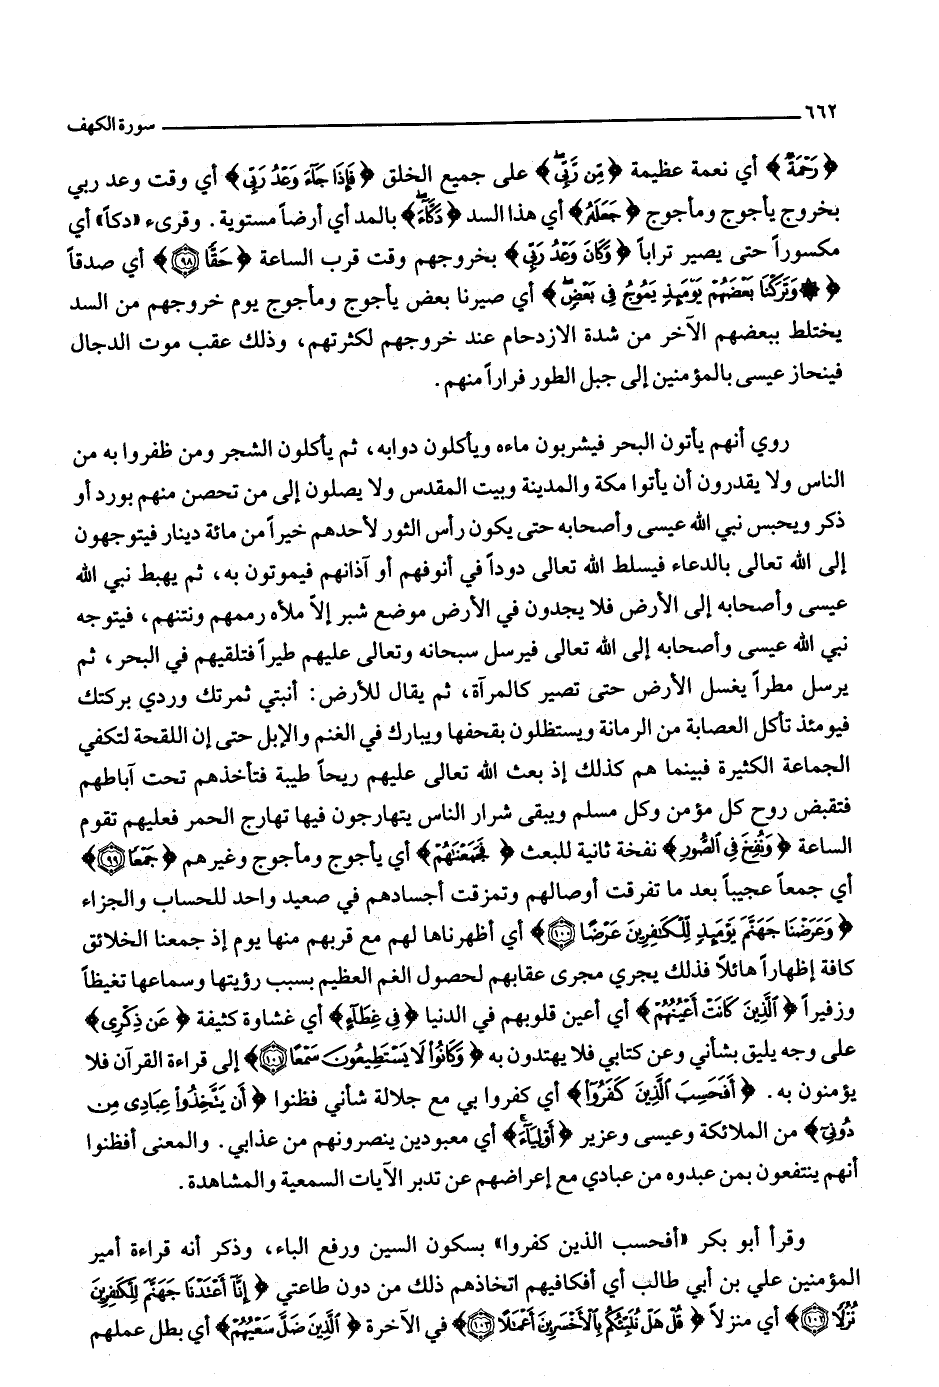 ٦٦٢ سورة الكهف
﴿رَحْمَةٌ﴾ أي نعمة عظيمة ﴿مِّن رَّبِّي﴾ على جميع الخلق ﴿فَإِذَا جَآءَ وَعْدُ رَبِّي﴾ أي وقت وعد ربي
بخروج يأجوج ومأجوج ﴿جَعَلَهُ﴾ أي هذا السد ﴿دَكَّآءَ﴾ بالمد أي أرضاً مستوية. وقرىء «دكاً» أي
مكسوراً حتى يصير تراباً ﴿وَكَانَ وَعْدُ رَبِّي﴾ بخروجهم وقت قرب الساعة ﴿حَقًّا ٩٨﴾ أي صدقاً
﴿۞ وَتَرَكْنَا بَعْضَهُمْ يَوْمَئِذٍ يَمُوجُ فِي بَعْضٍ﴾ أي صيرنا بعض يأجوج ومأجوج يوم خروجهم من السد
يختلط ببعضهم الآخر من شدة الازدحام عند خروجهم لكثرتهم، وذلك عقب موت الدجال
فينحاز عيسى بالمؤمنين إلى جبل الطور فراراً منهم.
روي أنهم يأتون البحر فيشربون ماءه ويأكلون دوابه، ثم يأكلون الشجر ومن ظفروا به من
الناس ولا يقدرون أن يأتوا مكة والمدينة وبيت المقدس ولا يصلون إلى من تحصن منهم بورد أو
ذكر ويحبس نبي الله عيسى وأصحابه حتى يكون رأس الثور لأحدهم خيراً من مائة دينار فيتوجهون
إلى الله تعالى بالدعاء فيسلط الله تعالى دوداً في أنوفهم أو آذانهم فيموتون به، ثم يهبط نبي الله
عيسى وأصحابه إلى الأرض فلا يجدون في الأرض موضع شبر إلاّ ملأه رممهم ونتنهم، فيتوجه
نبي الله عيسى وأصحابه إلى الله تعالى فيرسل سبحانه وتعالى عليهم طيراً فتلقيهم في البحر، ثم
يرسل مطراً يغسل الأرض حتى تصير كالمرآة، ثم يقال للأرض: أنبتي ثمرتك وردي بركتك
فيومئذ تأكل العصابة من الرمانة ويستظلون بقحفها ويبارك في الغنم والإبل حتى إن اللقحة لتكفي
الجماعة الكثيرة فبينما هم كذلك إذ بعث الله تعالى عليهم ريحاً طيبة فتأخذهم تحت آباطهم
فتقبض روح كل مؤمن وكل مسلم ويبقى شرار الناس يتهارجون فيها تهارج الحمر فعليهم تقوم
الساعة ﴿وَنُفِخَ فِي ٱلصُّورِ﴾ نفخة ثانية للبعث ﴿فَجَمَعْنَٰهُمْ﴾ أي يأجوج ومأجوج وغيرهم ﴿جَمْعًا ٩٩﴾
أي جمعاً عجيباً بعد ما تفرقت أوصالهم وتمزقت أجسادهم في صعيد واحد للحساب والجزاء
﴿وَعَرَضْنَا جَهَنَّمَ يَوْمَئِذٍ لِّلْكَٰفِرِينَ عَرْضًا ١٠٠﴾ أي أظهرناها لهم مع قربهم منها يوم إذ جمعنا الخلائق
كافة إظهاراً هائلاً فذلك يجري مجرى عقابهم لحصول الغم العظيم بسبب رؤيتها وسماعها تغيظاً
وزفيراً ﴿ٱلَّذِينَ كَانَتْ أَعْيُنُهُمْ﴾ أي أعين قلوبهم في الدنيا ﴿فِي غِطَآءٍ﴾ أي غشاوة كثيفة ﴿عَن ذِكْرِى﴾
على وجه يليق بشأني وعن كتابي فلا يهتدون به ﴿وَكَانُوا۟ لَا يَسْتَطِيعُونَ سَمْعًا ١٠١﴾ إلى قراءة القرآن فلا
يؤمنون به. ﴿أَفَحَسِبَ ٱلَّذِينَ كَفَرُوٓا۟﴾ أي كفروا بي مع جلالة شأني فظنوا ﴿أَن يَتَّخِذُوا۟ عِبَادِى مِن
دُونِيٓ﴾ من الملائكة وعيسى وعزير ﴿أَوْلِيَآءَ﴾ أي معبودين ينصرونهم من عذابي. والمعنى أفظنوا
أنهم ينتفعون بمن عبدوه من عبادي مع إعراضهم عن تدبر الآيات السمعية والمشاهدة.
وقرأ أبو بكر «أفحسب الذين كفروا» بسكون السين ورفع الباء، وذكر أنه قراءة أمير
المؤمنين علي بن أبي طالب أي أفكافيهم اتخاذهم ذلك من دون طاعتي ﴿إِنَّآ أَعْتَدْنَا جَهَنَّمَ لِلْكَٰفِرِينَ
نُزُلًا ١٠٢﴾ أي منزلاً ﴿قُلْ هَلْ نُنَبِّئُكُم بِٱلْأَخْسَرِينَ أَعْمَٰلًا ١٠٣﴾ في الآخرة ﴿ٱلَّذِينَ ضَلَّ سَعْيُهُمْ﴾ أي بطل عملهم